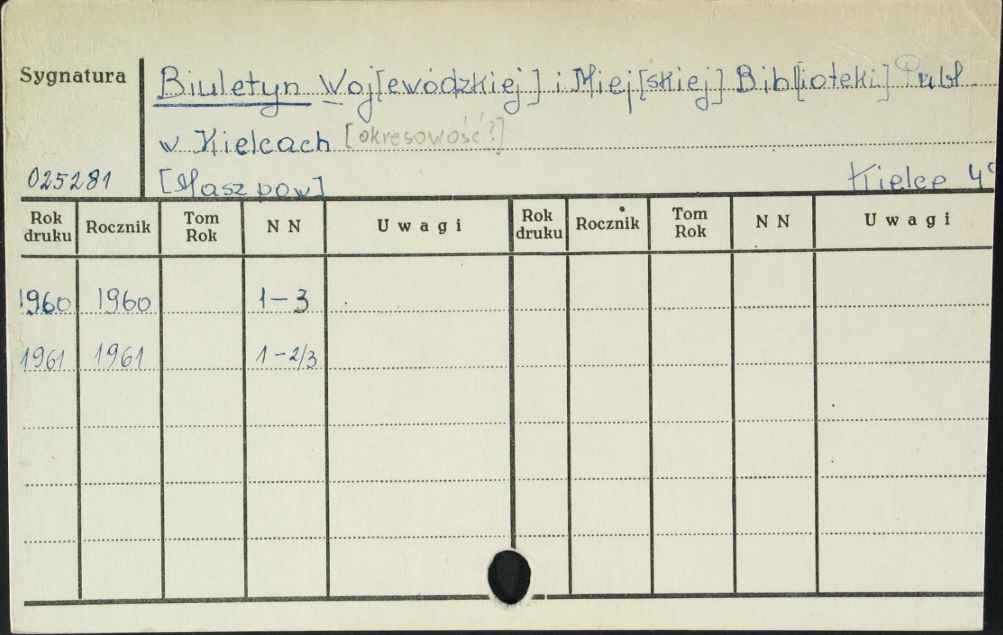 Sygnatura
Biuletyn Woj[ewódzkiej] i Miej[skiej] Bib[lioteki] Publ.
w Kielcach [okresowość?]
025281 [Masz pow] Kielce 4°
Rok druku Rocznik Tom Rok NN Uwagi Rok druku Rocznik Tom Rok NN Uwagi
1960 1960 1-3
1961 1961 1-2/3